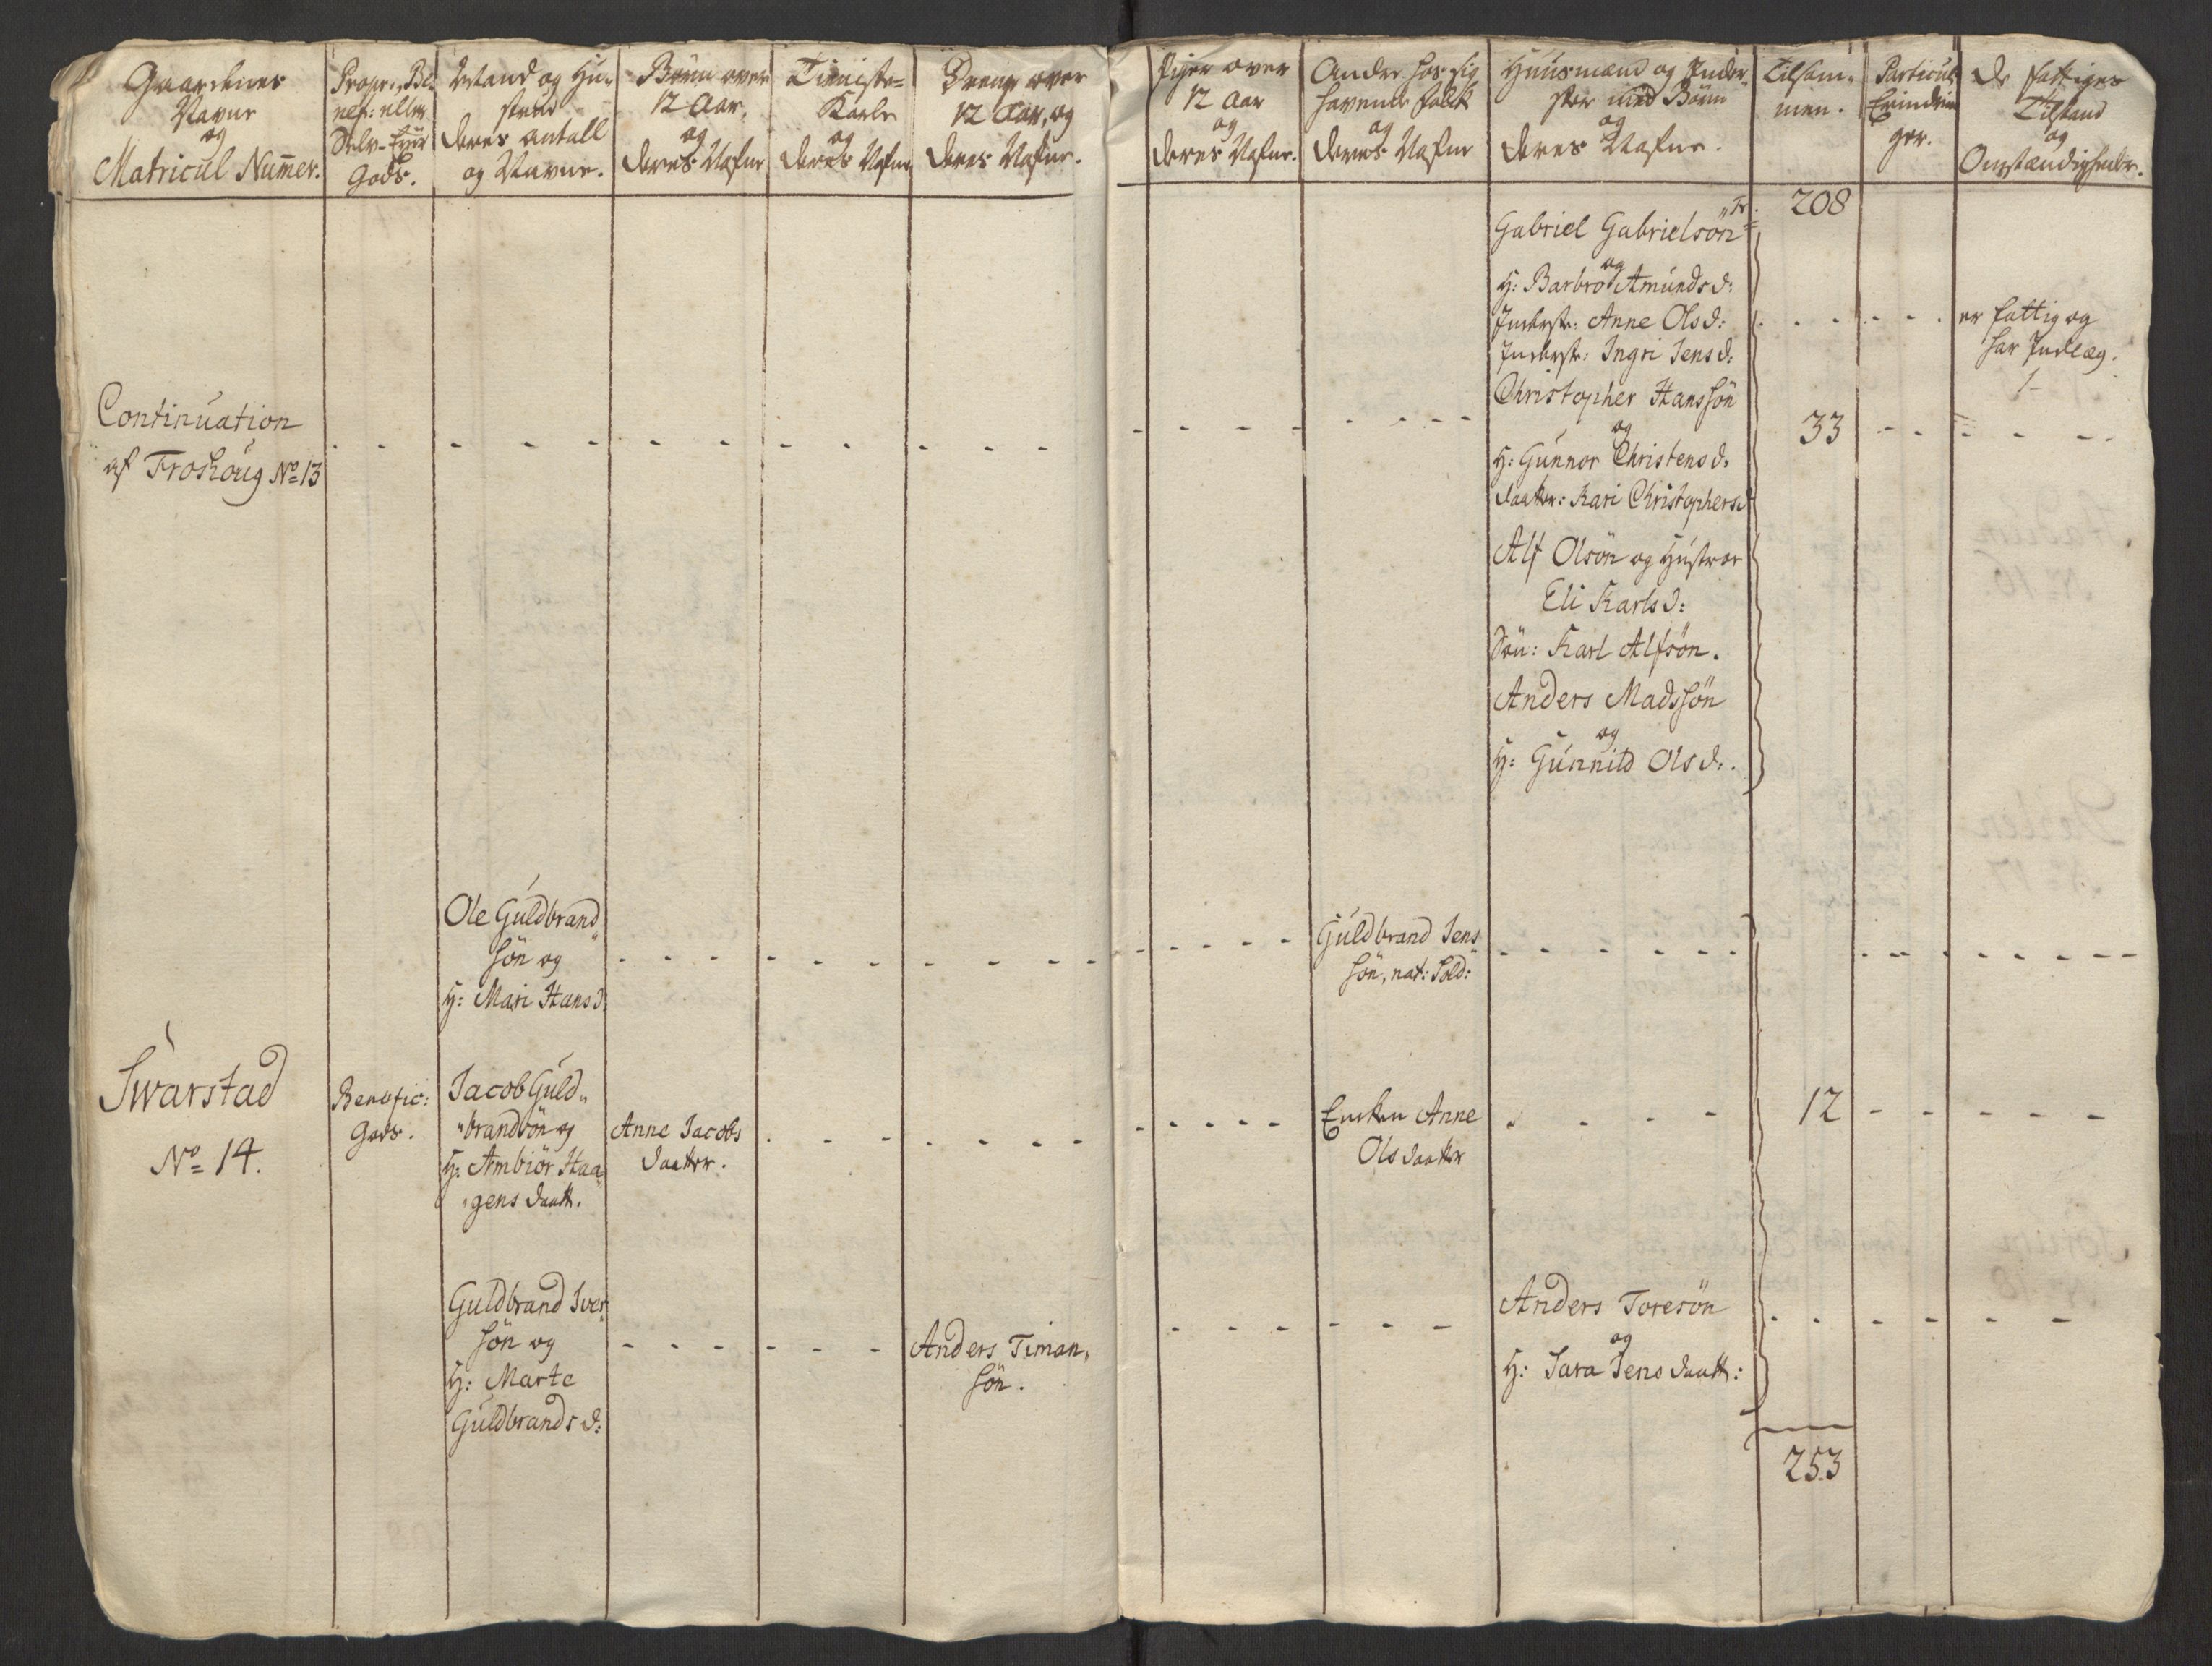 Gaardenes
Navne
og
Matricul Num̄er.
Propr., Be-
nef: eller
Selv-Eyer
Gods.
Mand og Hu-
strue
deres antall
og Navne.
Börn over
12 Aar,
og
deres Nafne
Tieniste-
Karle
og
deres Nafne
Drenge over
12 Aar, og
deres Nafne.
Piger over
12 Aar
og
deres Nafne.
Andre hos sig
havende Folck
og
deres Nafne
Huusmænd og Inder-
ster med Börn
og
deres Nafne.
Tilsam-
men.
Particul:
Erindrin
ger.
De fattiges
Tilstand
og
Omstændigheder.
Tr.
208
Gabriel Gabrielsön
og
H: Barbro Amunds d:
Inderst: Anne Ols d:
er fattig og
har Indlæg.
1-
Inderst: Ingri Jens d:
Christopher Hanssön
Continuation
af Froshoug No 13
33
og
H: Gunnor Christens d:
daatter: Kari Christophers d
Alf Olsön og Hustroe
Eli Karls d:
Sön: Karl Alfsön.
Anders Madssön
og
H: Gunnild Ols d:.
Ole Guldbrand
sön og
H: Mari Hans d.
Guldbrand Jens
sön, nat: Sold:
Swarstad
No 14.
Benefic:
Gods.
Jacob Guld-
brandsön og
H: Ambiör Haa
gens daatt.
Anne Jacobs
daatter.
Encken Anne
Ols daatter
12
Guldbrand Iver
sön og
H: Marte
Guldbrands d:
Anders Timan,
sön.
Anders Toresön
og
H: Sara Jens daatt:
253